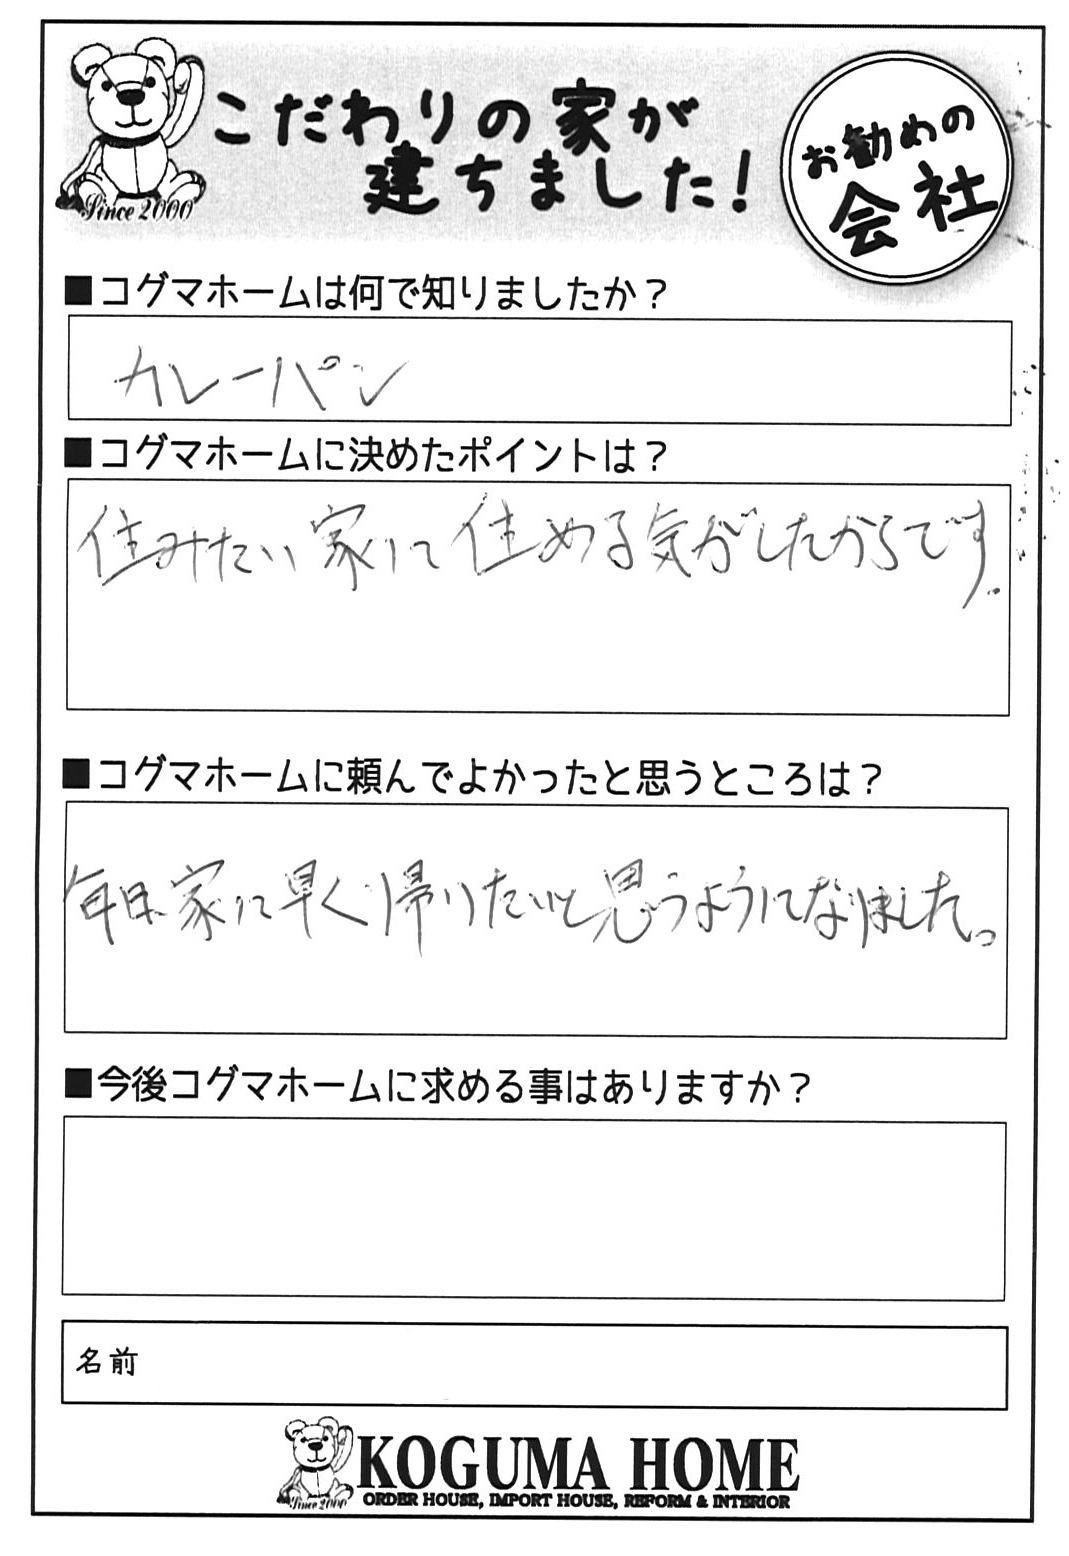 こだわりの家が
建ちました!
お勧めの
会社
Since 2000
■コグマホームは何で知りましたか?
カレーパン
■コグマホームに決めたポイントは?
住みたい家に住める気がしたからです.
■コグマホームに頼んでよかったと思うところは?
毎日家に早く帰りたいと思うようになりました。
■今後コグマホームに求める事はありますか?
名前
Since 2000
KOGUMA HOME
ORDER HOUSE, IMPORT HOUSE, REFORM & INTERIOR